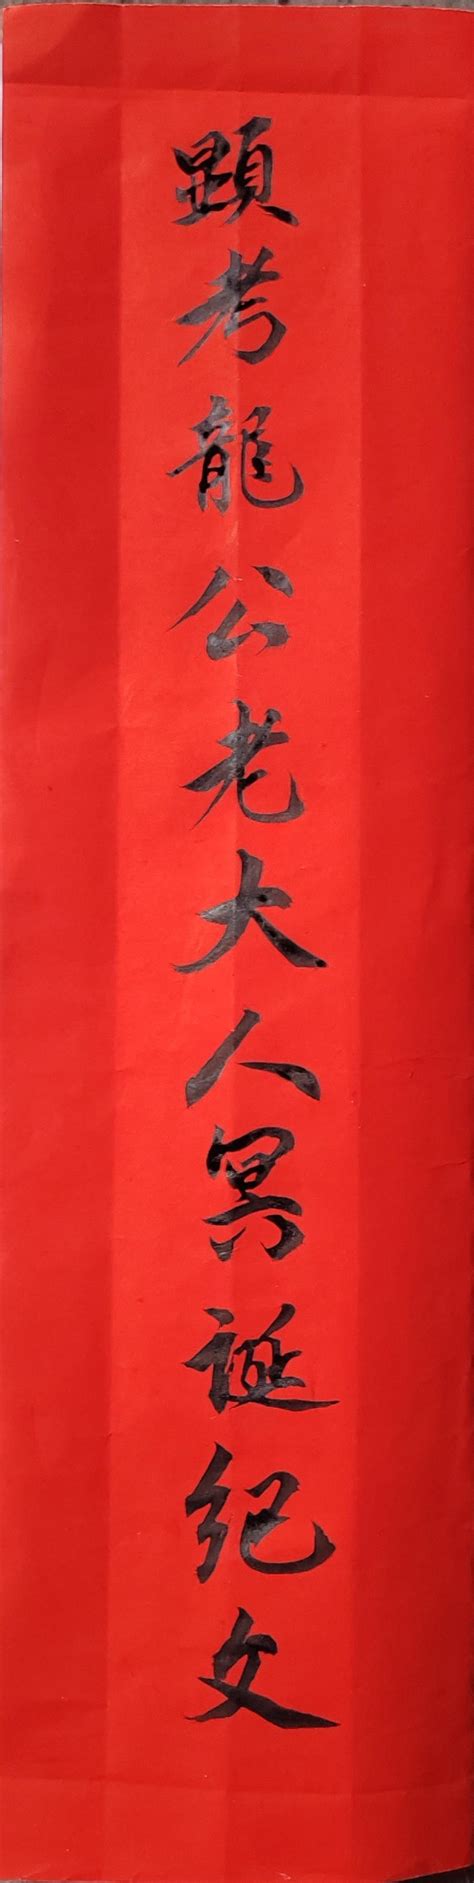 顕考龍公老大人冥誕纪文